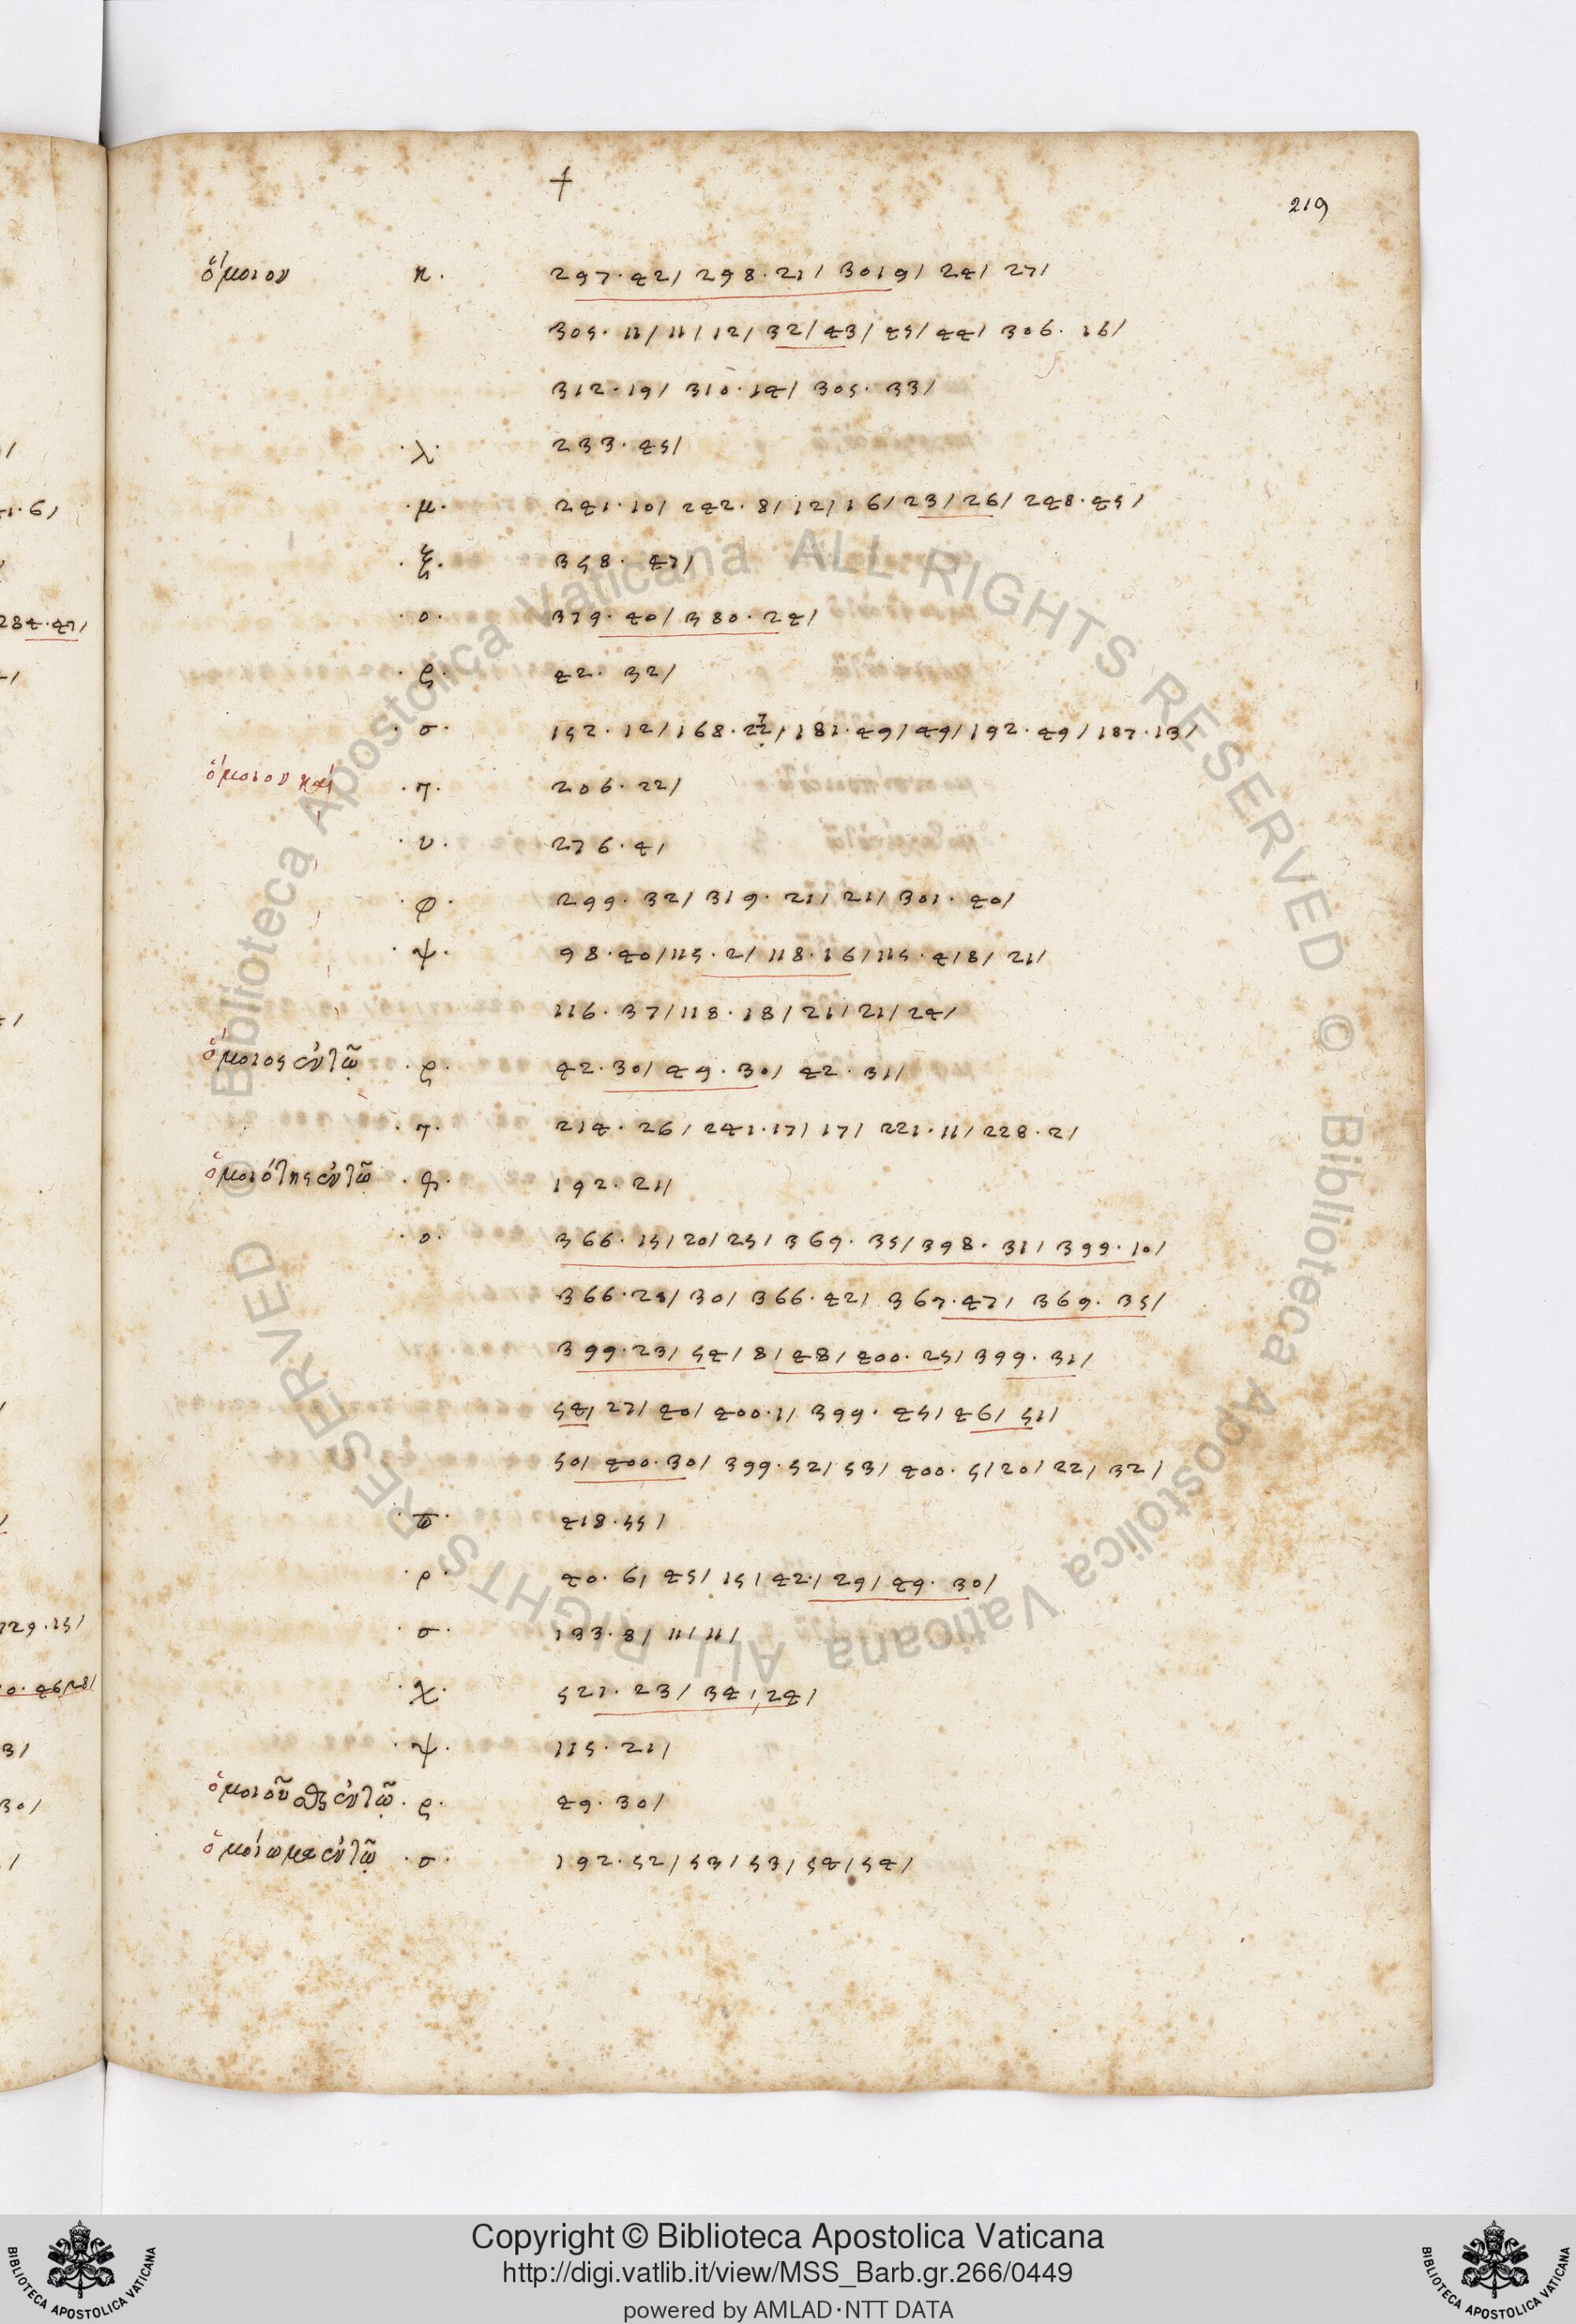 †
219
ὅμοιον κ. 297·42/ 298·21/ 301 9/ 24/ 27/
305·11/ 11/ 12/ 32/ 43/ 45/ 44/ 306·16/
312·19/ 310·14/ 305·33/
·λ· 233·45/
·μ· 241·10/ 242·8/ 12/ 16/ 23/ 26/ 248·45/
·ξ· 358·47/
·ο· 379·40/ 380·24/
·ς· 42·32/
·σ· 152·12/ 168· / 181·49/ 49/ 192·49/ 187·13/
ὅμοιον καὶ ·τ· 206·22/
·υ· 276·4/
·φ· 299·32/ 319·21/ 21/ 301·40/
·ψ· 98·40/ 115·2/ 118·16/ 115·4/8/ 21/
116·37/ 118·18/ 21/ 21/ 24/
ὅμοιος ἐν τῷ ·ς· 42·30/ 49·30/ 42·31/
·τ· 214·26/ 241·17/ 17/ 221·11/ 228·2/
ὁμοιότης ἐν τῷ 192·21/
·ο· 366·15/ 20/ 25/ 369·35/ 398·31/ 399·10/
366·28/ 30/ 366·42/ 367·47/ 369·35/
399·23/ 54/ 8/ 48/ 400·25/ 399·31/
54/ 27/ 40/ 400·1/ 399·45/ 46/ 51/
50/ 400·30/ 399·52/ 53/ 400·5/ 20/ 22/ 32/
·ϖ· 418·55/
·ρ· 40·6/ 45/ 15/ 42·/ 29/ 49·30/
·σ· 133·8/ 11/ 11/
·χ· 521·23/ 34/ 24/
·ψ· 115·21/
ὁμοιοῦσθαι ἐν τῷ ·ς· 49·30/
ὁμοίωμα ἐν τῷ ·σ· 192·52/ 53/ 53/ 54/ 54/
1·6/
284·47/
729·15/
0·46/28/
3/
30/
Copyright © Biblioteca Apostolica Vaticana
http://digi.vatlib.it/view/MSS_Barb.gr.266/0449
powered by AMLAD·NTT DATA
BIBLIOTECA APOSTOLICA VATICANA
BIBLIOTECA APOSTOLICA VATICANA
© Biblioteca Apostolica Vaticana ALL RIGHTS RESERVED
© Biblioteca Apostolica Vaticana ALL RIGHTS RESERVED